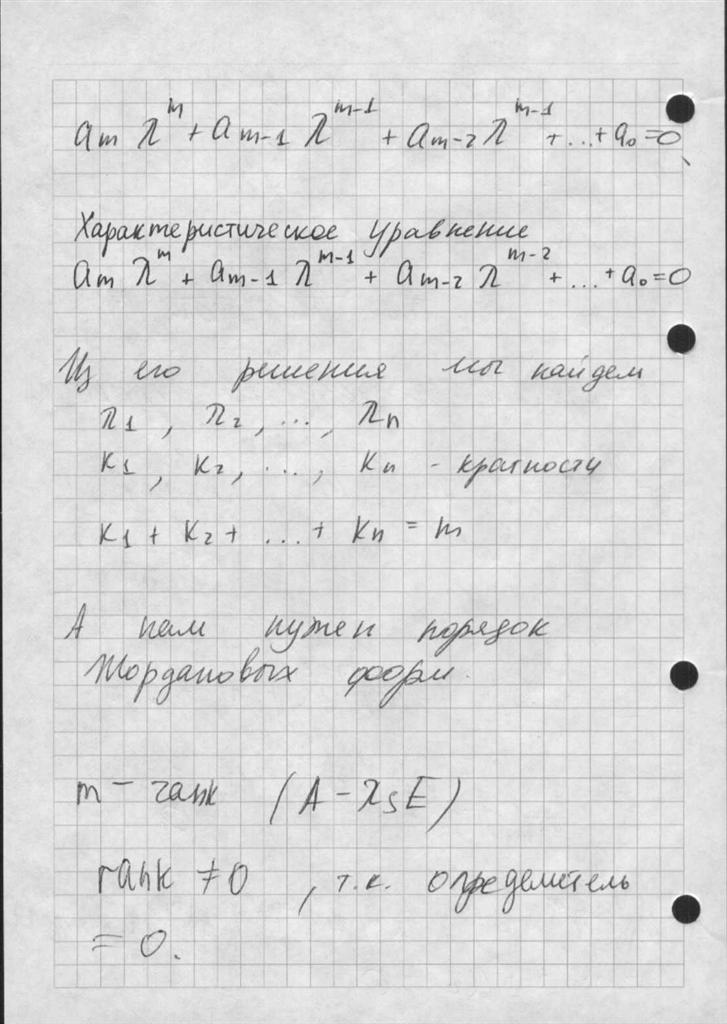 aₘ λᵐ + aₘ₋₁ λᵐ⁻¹ + aₘ₋₂ λᵐ⁻¹ + ... + a₀ = 0,
Характеристическое уравнение
aₘ λᵐ + aₘ₋₁ λᵐ⁻¹ + aₘ₋₂ λᵐ⁻² + ... + a₀ = 0
Из его решения мы найдем
λ₁, λ₂, ..., λₙ
к₁, к₂, ..., кₙ - кратности
к₁ + к₂ + ... + кₙ = m
А нам нужен порядок
Жордановых форм.
m - rank (A - λₛE)
rank ≠ 0, т.к. определитель
= 0.